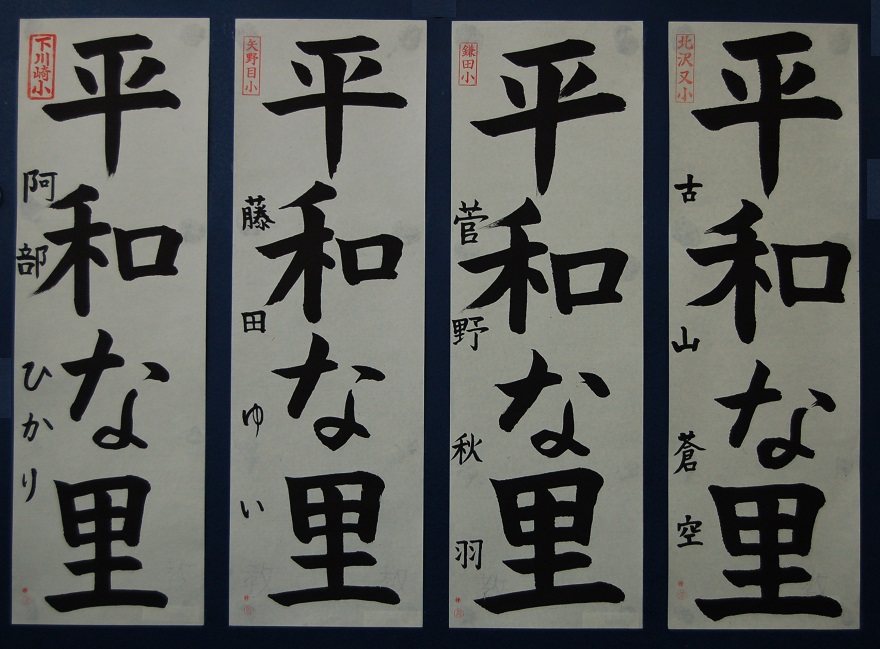 下川崎小
平和な里
阿部ひかり
矢野目小
平和な里
藤田ゆい
鎌田小
平和な里
菅野秋羽
北沢又小
平和な里
古山蒼空